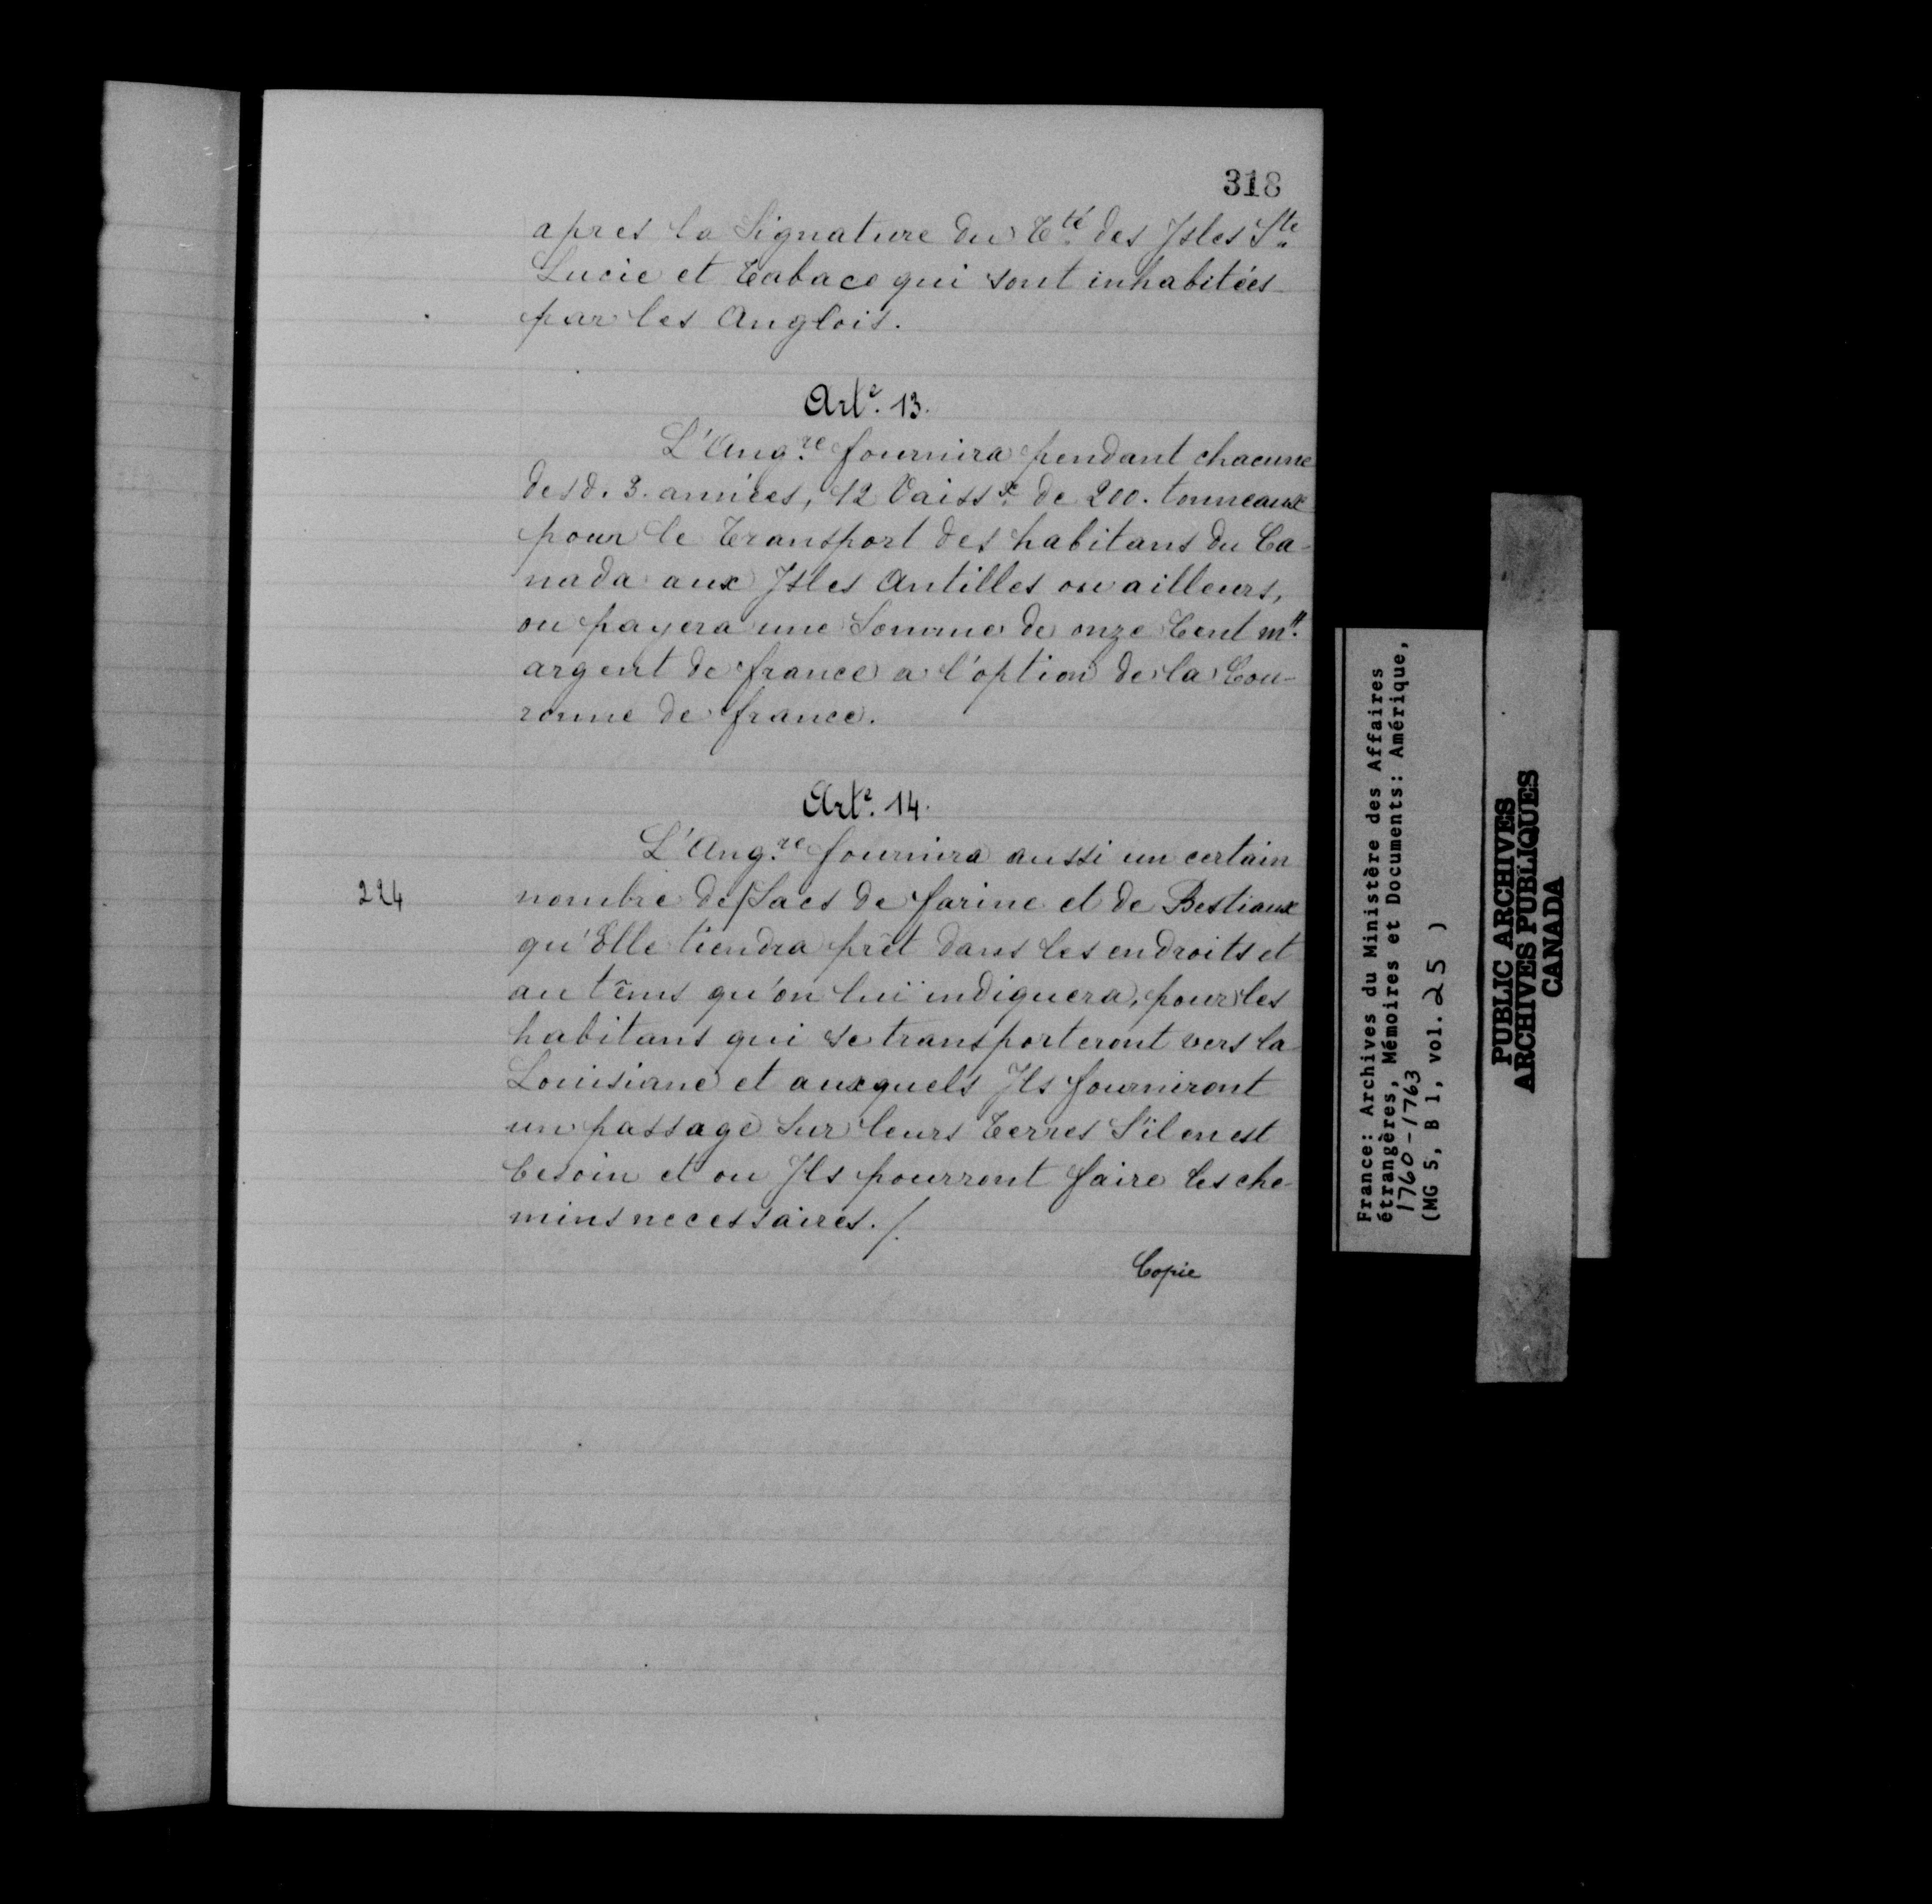 318
apres la Signature du Tté. des Isles Ste.
Lucie et Tabaco qui sont inhabitées
par les Anglois.
Arte. 13.
L'Angre. fournira pendant chacune
desd. 3. années, 12 Vaissx. de 200. tonneaux
pour le Transport des habitans du Ca-
nada aux Isles Antilles ou ailleurs,
ou payera une Somme de onze Cent m₶.
argent de france a l'option de la Cou-
ronne de france.
Arte. 14.
L'Angre. fournira aussi un certain
224 nombre de/Sacs de farine et de Bestiaux
qu'Elle tiendra prêt dans les endroits et
au tems qu'on lui indiquera, pour les
habitans qui se transporteront vers la
Louisiane et auxquels Ils fourniront
un passage sur leurs Terres S'il en est
besoin et ou Ils pourront faire les che-
mins necessaires./.
Copie
France: Archives du Ministère des Affaires
étrangères, Mémoires et Documents: Amérique,
1760-1763
(MG 5, B 1, vol. 25 )
PUBLIC ARCHIVES
ARCHIVES PUBLIQUES
CANADA